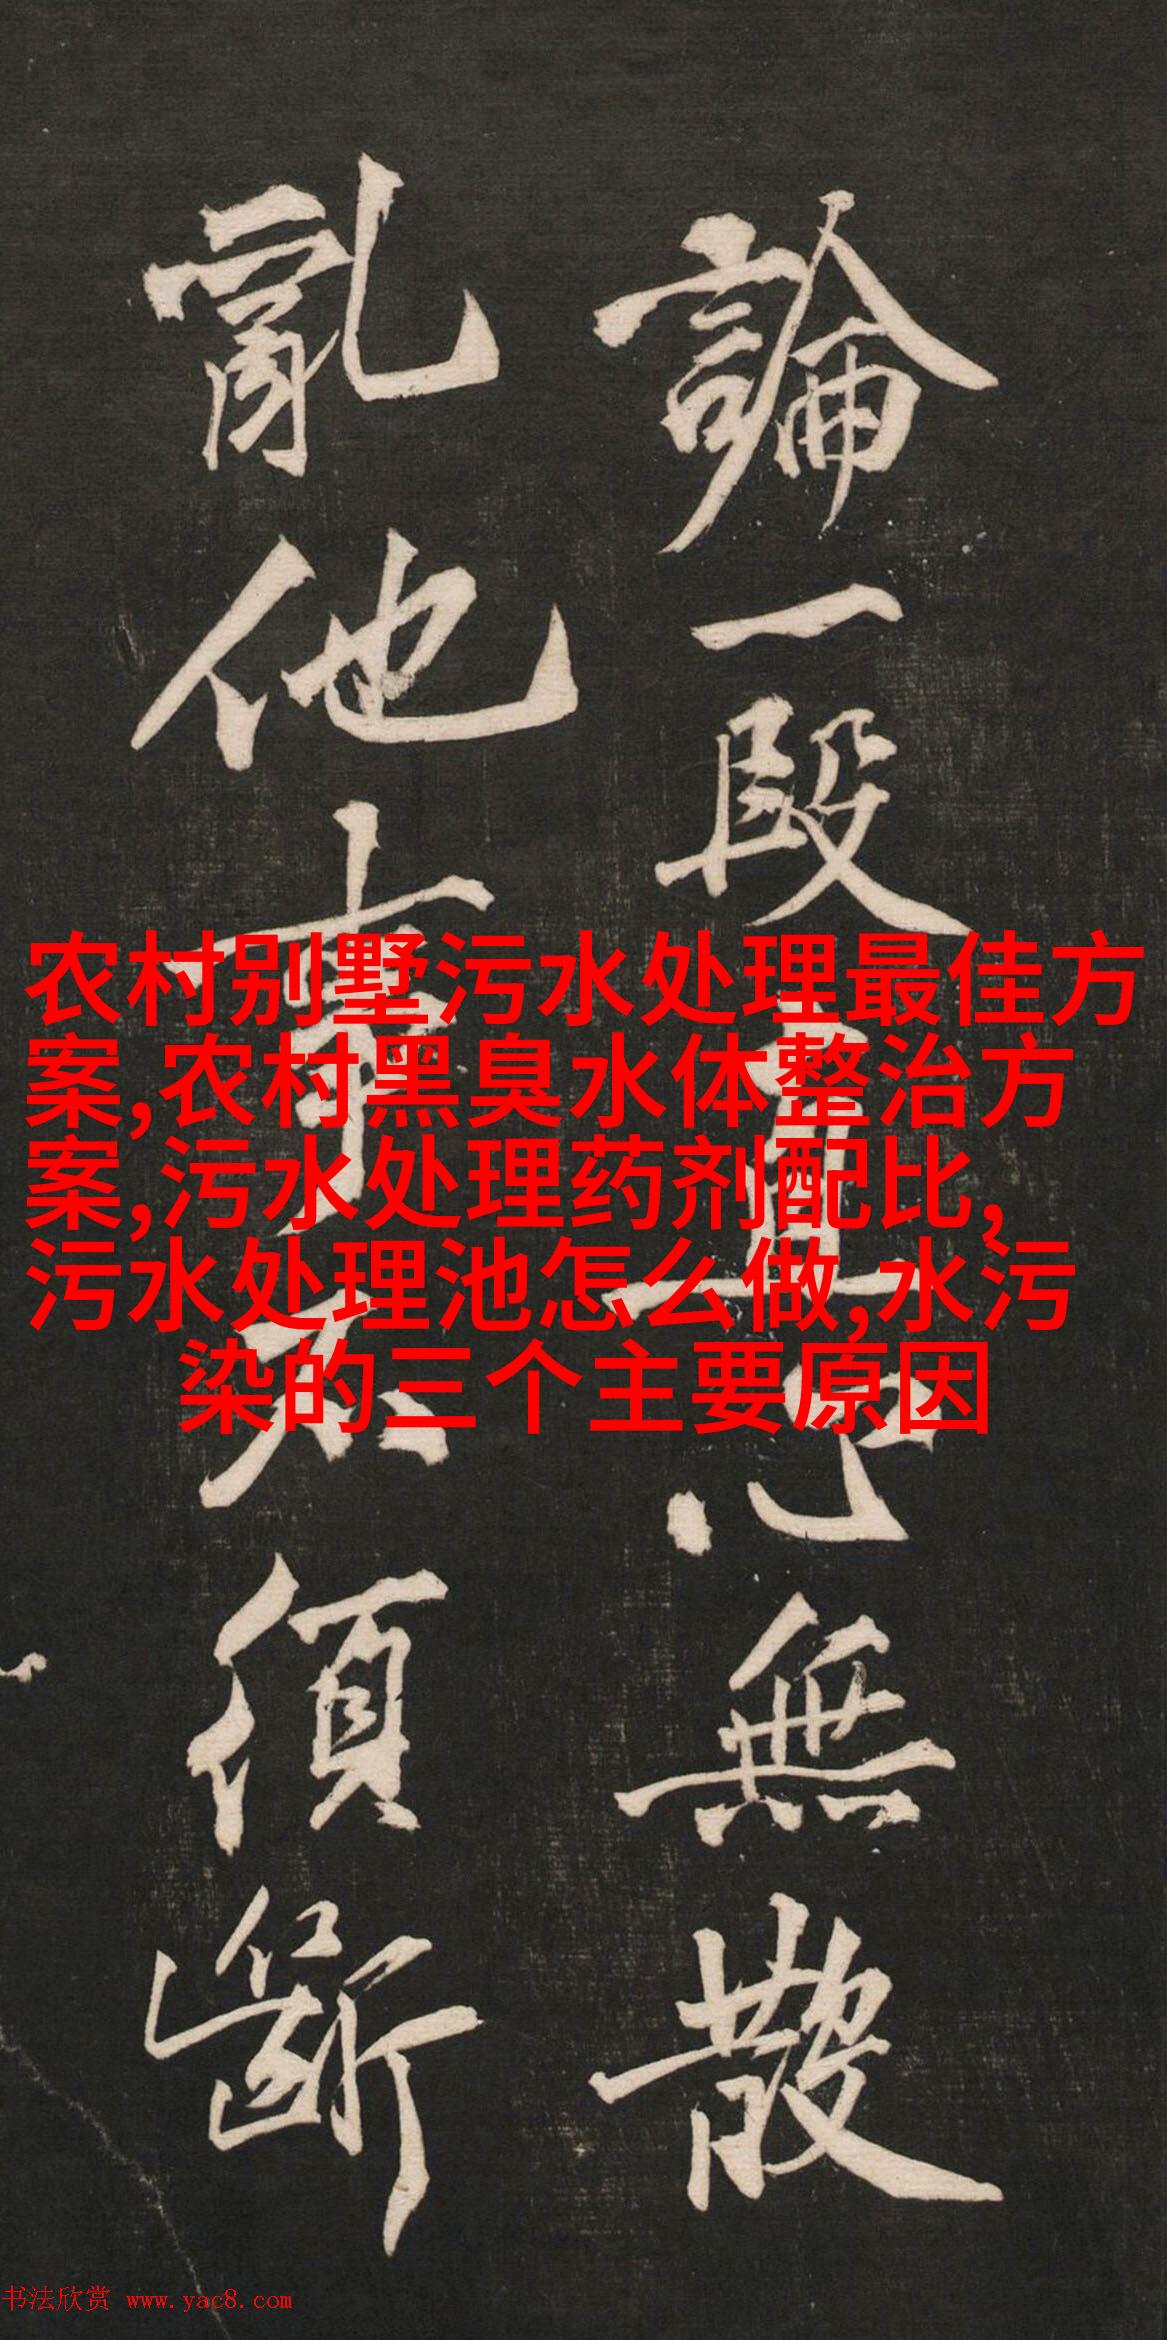 論一段直心無散
亂他事不須斷
农村别墅污水处理最佳方
案,农村黑臭水体整治方
案,污水处理药剂配比,
污水处理池怎么做,水污
染的三个主要原因
书法欣赏 www.yac8.com